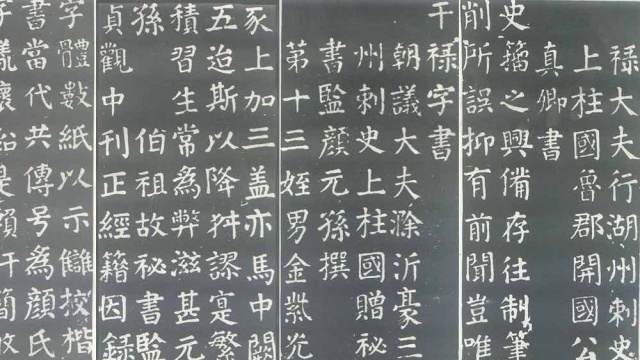 祿大夫行湖州刺史
上柱國魯郡開國公
真卿書
史籀之興備存往制筆
削所誤抑有前聞豈唯
干祿字書
朝議大夫滁沂豪三
州刺史上柱國贈秘
書監顏元孫撰
第十三姪男金紫光
豕上加三盖亦馬中闕
五迨斯以降舛謬寔繁
積習生常為弊滋甚元
孫 伯祖故秘書監
貞觀中刊正經籍因録
字體數紙以示讎校楷
書當代共傳号為顏氏
字樣懷鉛是賴汗簡攸